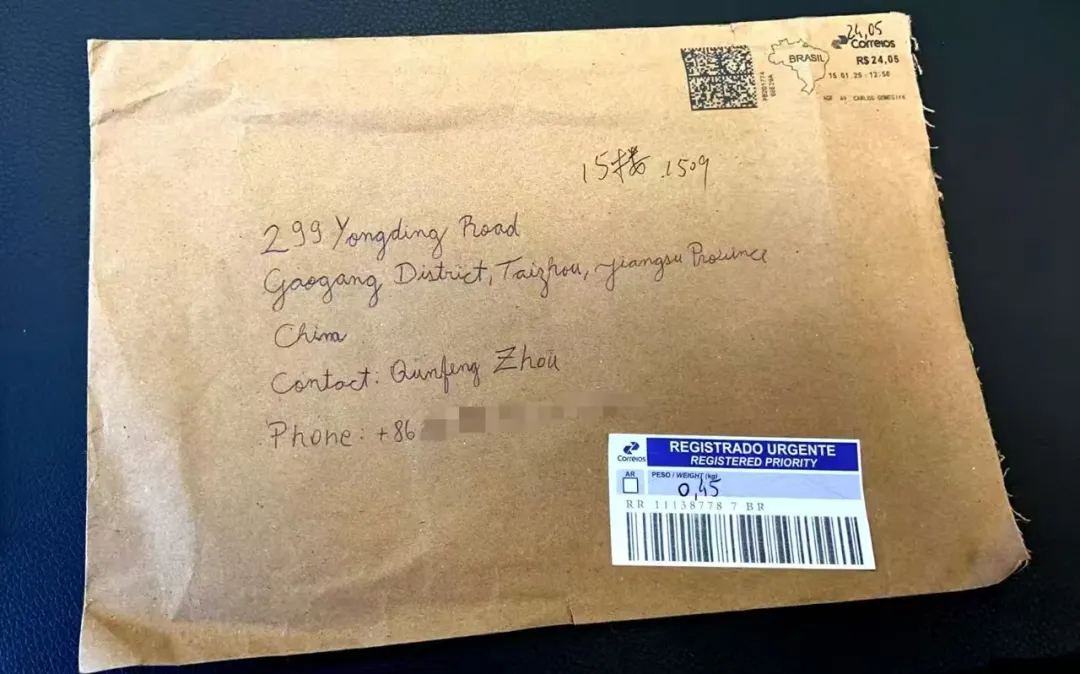 24,05
Correios
BRASIL
R$ 24,05
15.01.25-12:50
15楼.1509
299 Yongding Road
Gaogang District, Taizhou, Jiangsu Province
China
Contact: Qunfeng Zhou
Phone: +86
Correios
REGISTRADO URGENTE
REGISTERED PRIORITY
AR
PESO / WEIGHT (kg)
0,45
RR 11138778 7 BR